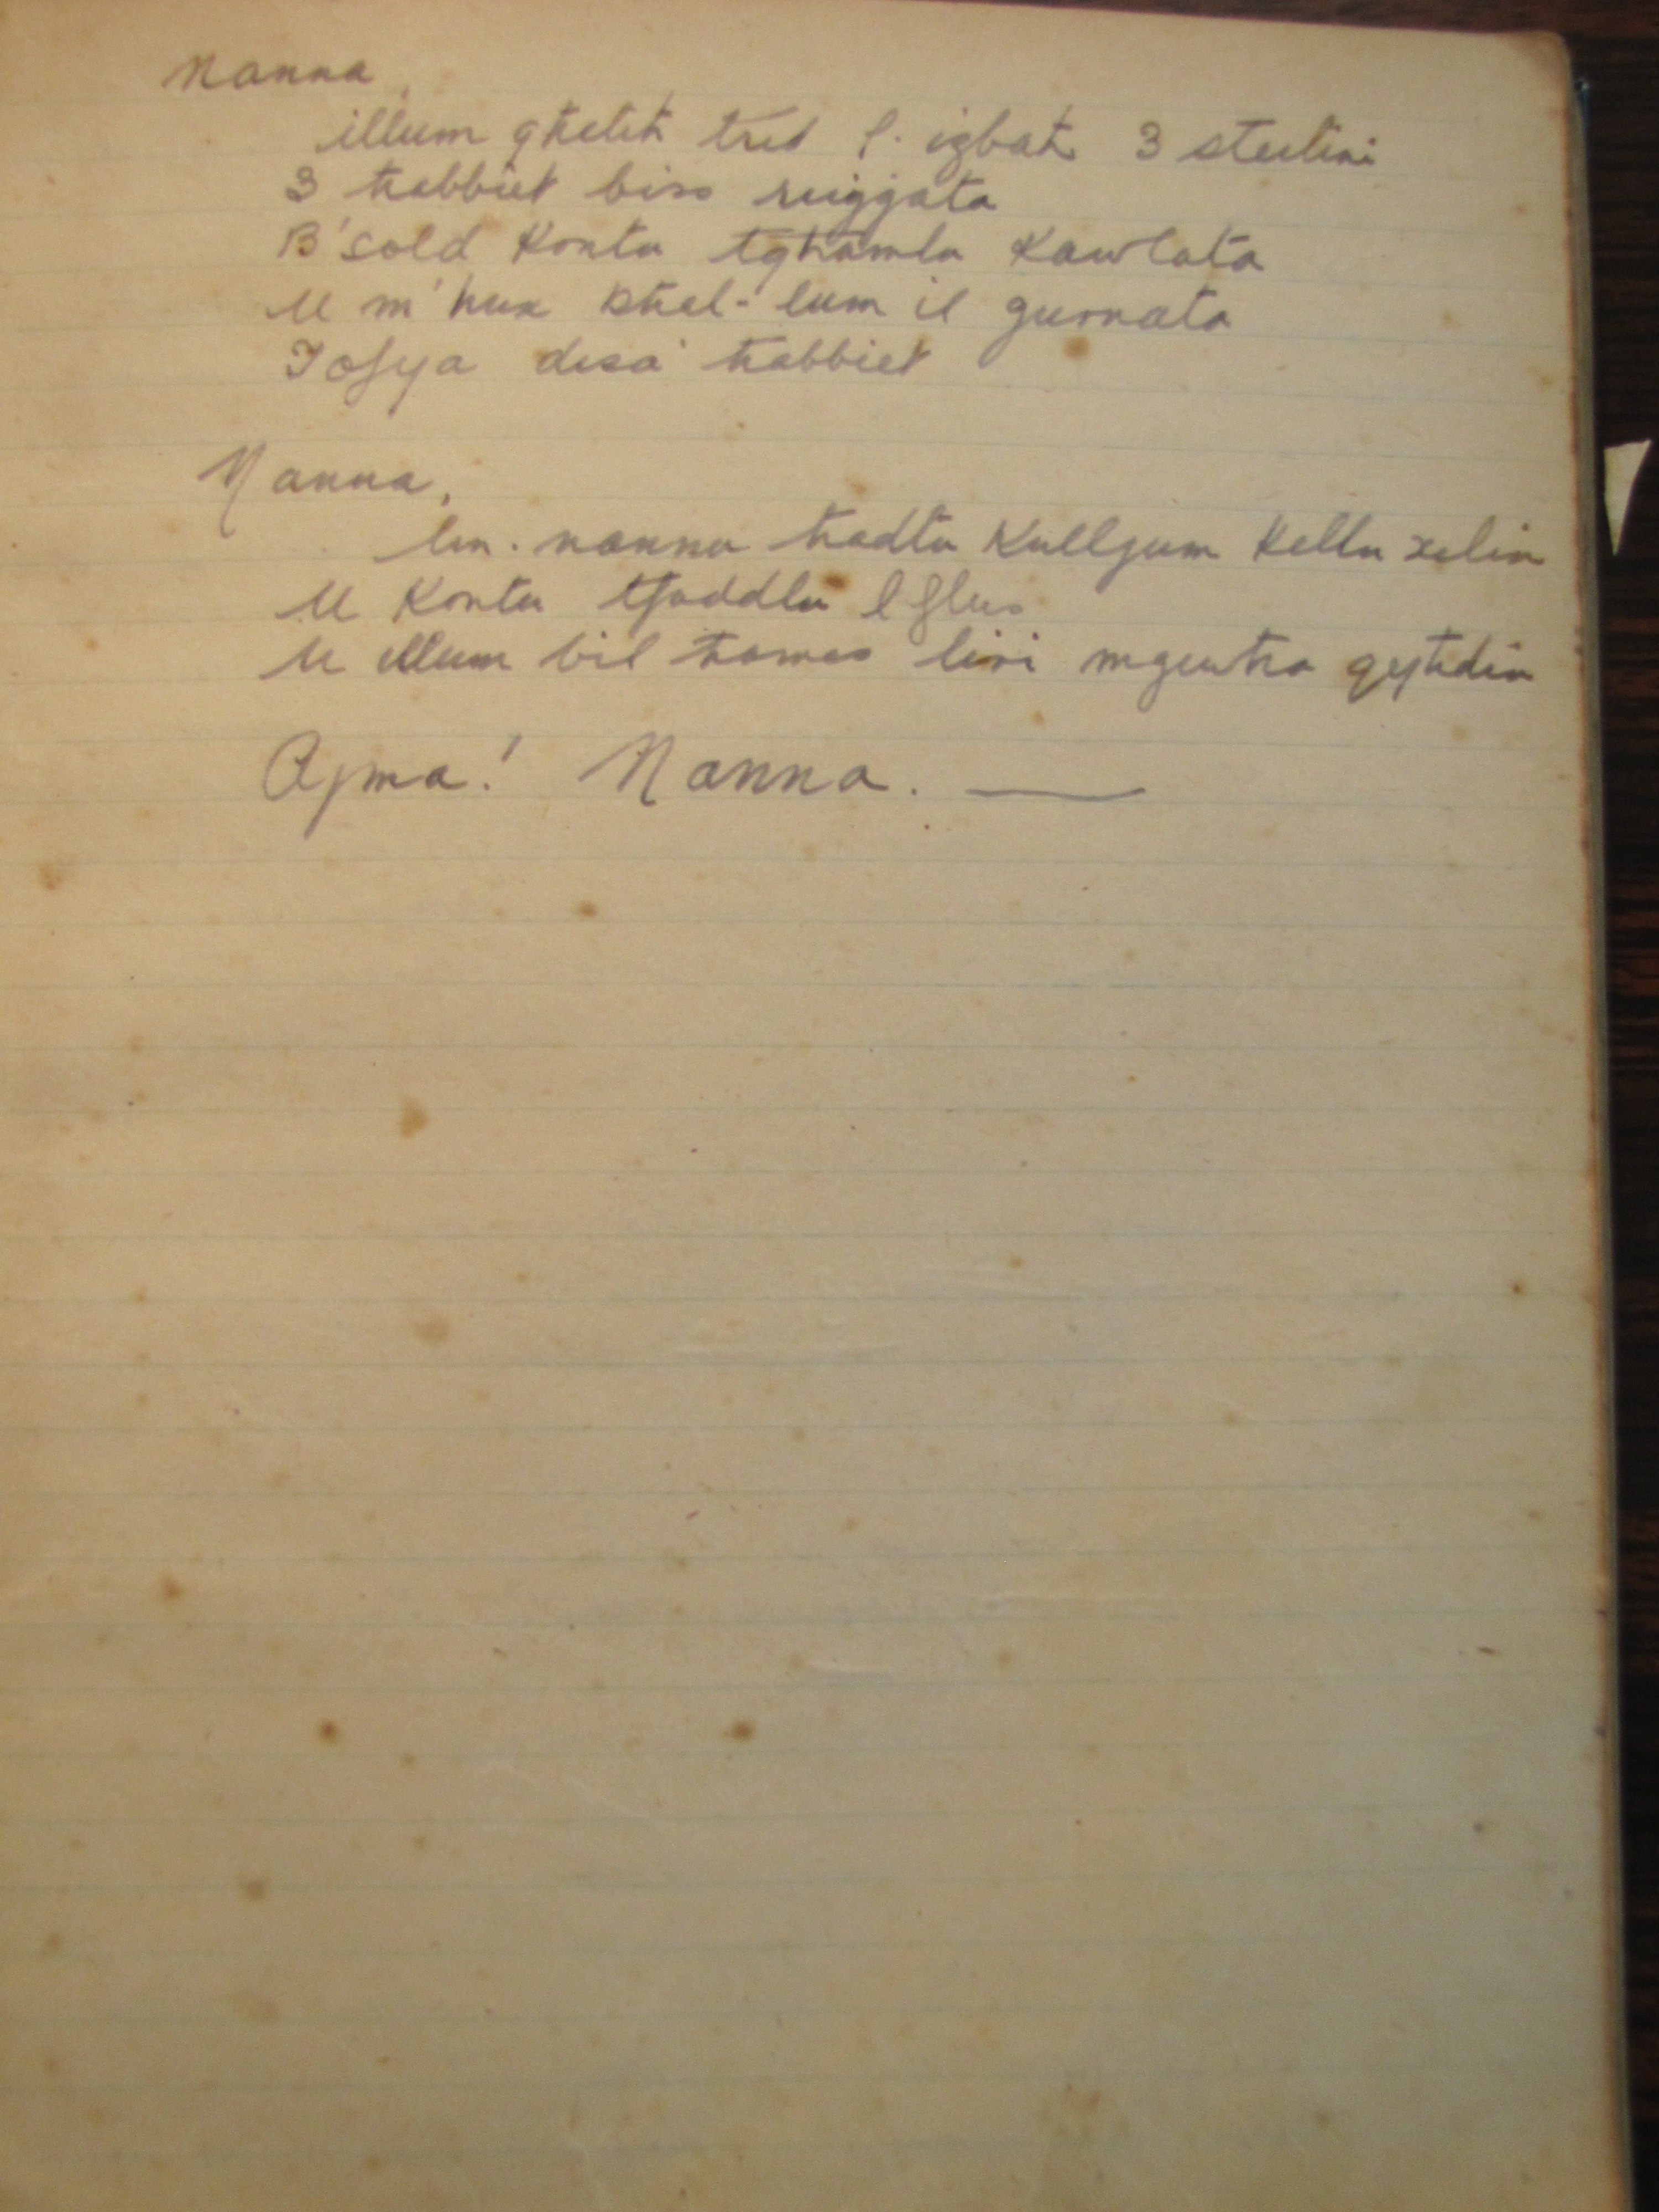 Nanna,
illum għelih trid l. izbah 3 sterlini
3 habbiet biss ruiggata
B'sold Kontu tghamlu Kawlata
U m'hux bħal-lum il gurnata
Tofya disa' habbiet
Nanna,
lin. nannu hadtu Kulljum Kellu xelin
U Kontu tfaddlu l flus
U illum bil hames liri mgewha qeghdin
Ajma! Nanna.